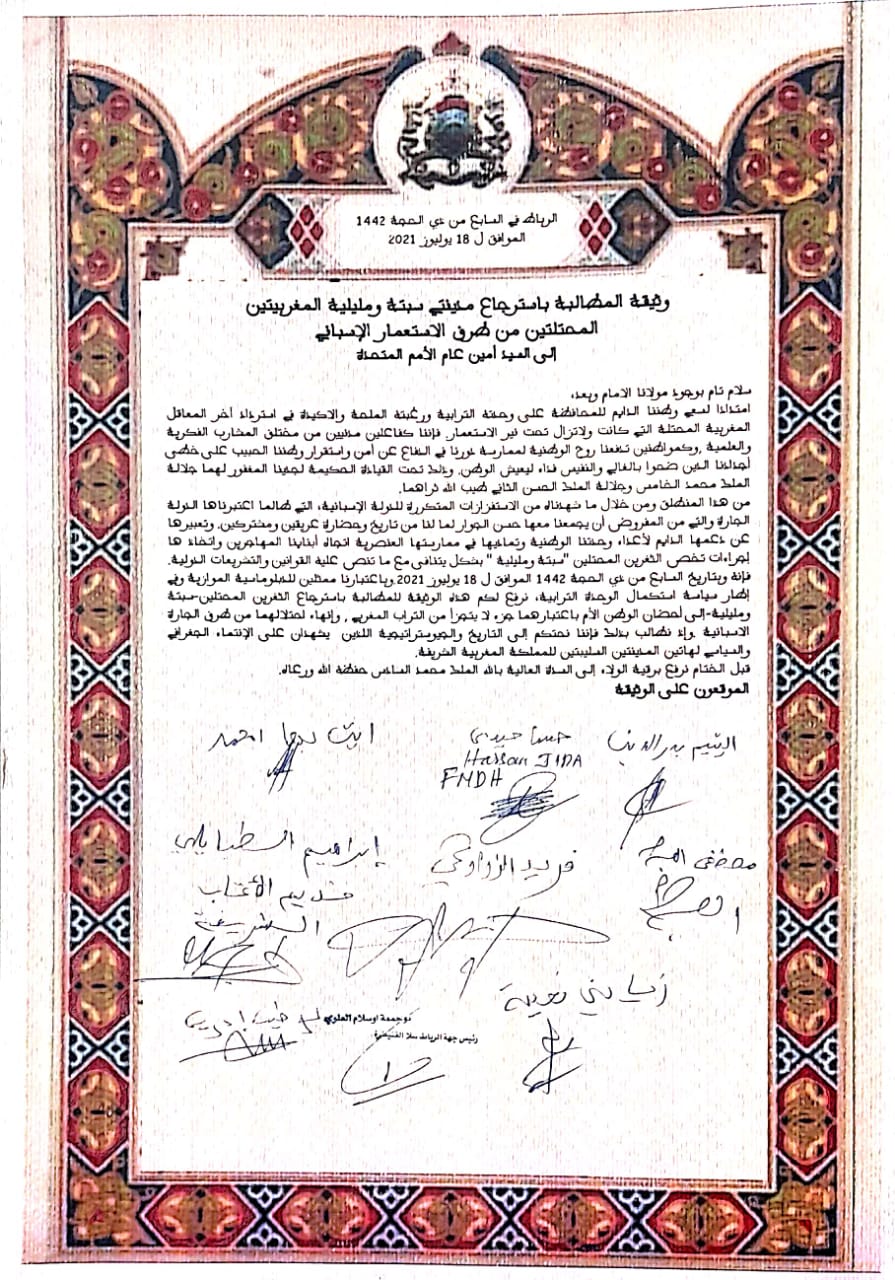 الرباط في السابع من ذي الحجة 1442
الموافق ل 18 يوليوز 2021
وثيقة المطالبة باسترجاع مدينتي سبتة ومليلية المغربيتين
المحتلتين من طرف الاستعمار الإسباني
إلى السيد أمين عام الأمم المتحدة
سلام تام بوجود مولانا الامام وبعد،
امتدادا لسعي وطننا الدايم للمحافظة على وحدته الترابية ورغبته الملحة والاكيدة في استرداد آخر المعاقل
المغربية المحتلة التي كانت ولاتزال تحت نير الاستعمار. فإننا كفاعلين مدنيين من مختلق المشارب الفكرية
والعلمية ,وكمواطنين تدفعنا روح الوطنية لممارسة دورنا في الدفاع عن أمن واستقرار وطننا الحبيب على خطى
أجدادنا الذين ضحوا بالغالي والنفيس فداء ليعيش الوطن. وذلك تحت القيادة الحكيمة لمجدينا المغفور لهما جلالة
الملك محمد الخامس وجلالة الملك الحسن الثاني طيب الله ثراهما.
من هذا المنطلق ومن خلال ما شهدناه من الاستفزازات المتكررة للدولة الإسبانية، التي طالما اعتبرناها الدولة
الجارة والتي من المفروض أن يجمعنا معها حسن الجوار لما لنا من تاريخ وحضارة عريقين ومشتركين. وتعبيرها
عن دعمها الدايم لأعداء وحدتنا الوطنية وتماديها في ممارستها العنصرية اتجاه أبناينا المهاجرين واتخاذ ها
لإجراءات تخص الثغرين المحتلين "سبتة ومليلية " بشكل يتنافى مع ما تنص علية القوانين والتشريعات الدولية.
فإنه وبتاريخ السابع من ذي الحجة 1442 الموافق ل 18 يوليوز 2021,وباعتبارنا ممثلين للدبلوماسية الموازية وفي
إطار سياسة استكمال الوحدة الترابية، نرفع لكم هذه الوثيقة للمطالبة باسترجاع الثغرين المحتلين-سبتة
ومليلية-إلى أحضان الوطن الأم باعتبارهما جزء لا يتجزأ من التراب المغربي , وإنهاء احتلالهما من طرق الجارة
الاسبانية .وإذ نطالب بذلك فإننا نحتكم إلى التاريخ والجيوستراتيجية اللذين يشهدان على الإنتماء الجغرافي
والسياسي لهاتين المدينتين السليبتين للمملكة المغربية الشريفة.
قبل الختام نرفع برقية الولاء إلى السدة العالية بالله الملك محمد السادس حفظه الله ورعاه.
الموقعون على الوثيقة
اليتيم بدر الدين
Hassan JIDA
FMDH
ايت احمد
مصطفى
فريد الزواوي
إبراهيم
السطيبايلي
خديم الأعتاب
الشريفة
نعيمة
دوجمعة اوسلام العلوي
رئيس جهة الرباط سلا القنيطرة